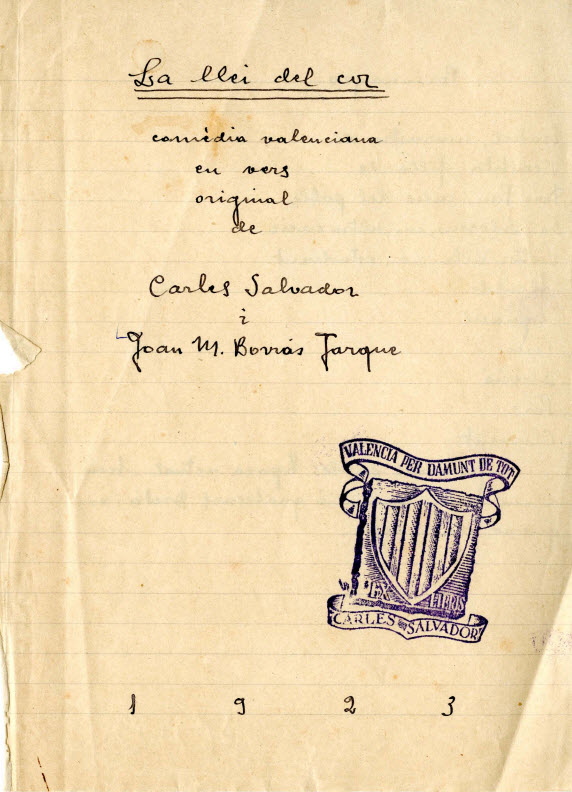 La llei del cor
comèdia valenciana
en vers
original
de
Carles Salvador
i
Joan M. Borrás Jarque
VALENCIA PER DAMUNT DE TOT
EX LIBRIS
CARLES SALVADOR
1 9 2 3